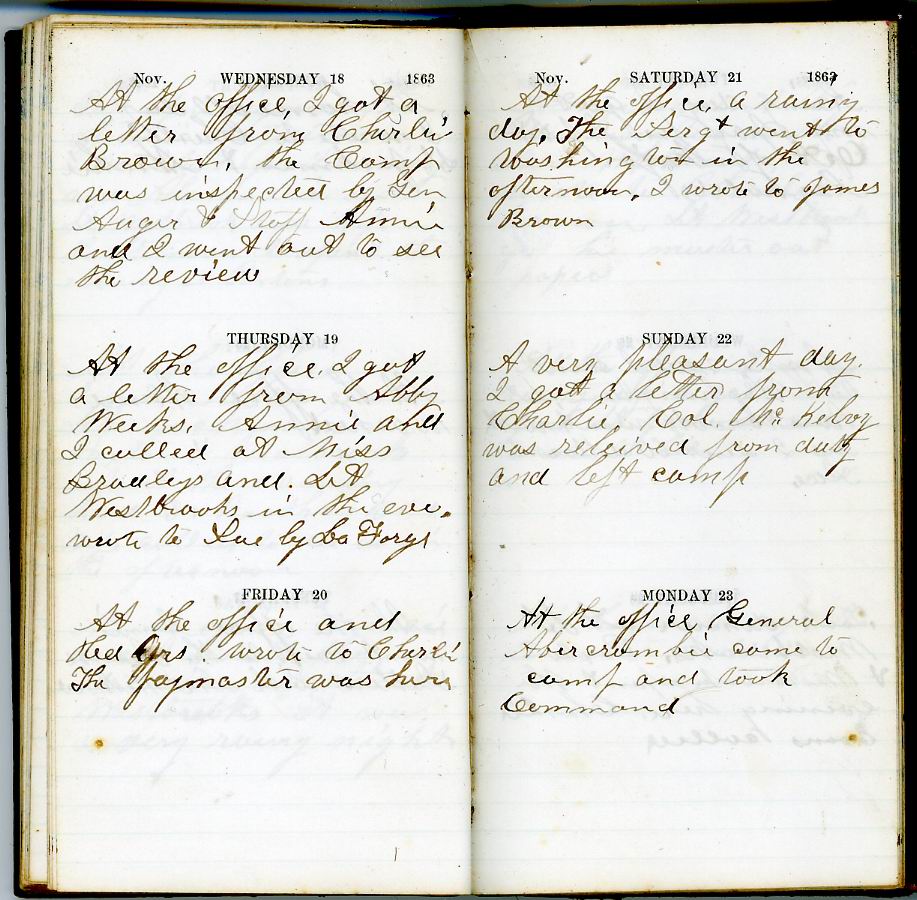 Nov. WEDNESDAY 18 1863
At the office, I got a
letter from Charlie
Brown, the Camp
was inspected by Gen
Auger & Staff Annie
and I went out to see
the review
THURSDAY 19
At the office, I got
a letter from Abby
Weeks, Annie and
I called at Miss
Bradleys and Lt
Westbrooks in the eve.
wrote to Sue by La Forge
FRIDAY 20
At the office and
Hed Qrs. wrote to Charlie
The paymaster was here
Nov. SATURDAY 21 1863
At the office, a rainy
day. The Sergt went to
Washington in the
afternoon, I wrote to James
Brown
SUNDAY 22
A very pleasant day.
I got a letter from
Charlie, Col. Mc Kelvy
was releived from duty
and left camp
MONDAY 23
At the office, General
Abercrombie came to
camp and took
Command